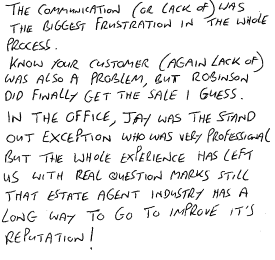 THE COMMUNICATION (OR LACK OF) WAS
THE BIGGEST FRUSTRATION IN THE WHOLE
PROCESS.
KNOW YOUR CUSTOMER (AGAIN LACK OF)
WAS ALSO A PROBLEM, BUT ROBINSON
DID FINALLY GET THE SALE I GUESS.
IN THE OFFICE, JAY WAS THE STAND
OUT EXCEPTION WHO WAS VERY PROFESSIONAL
BUT THE WHOLE EXPERIENCE HAS LEFT
US WITH REAL QUESTION MARKS STILL
THAT ESTATE AGENT INDUSTRY HAS A
LONG WAY TO GO TO IMPROVE IT'S
REPUTATION!